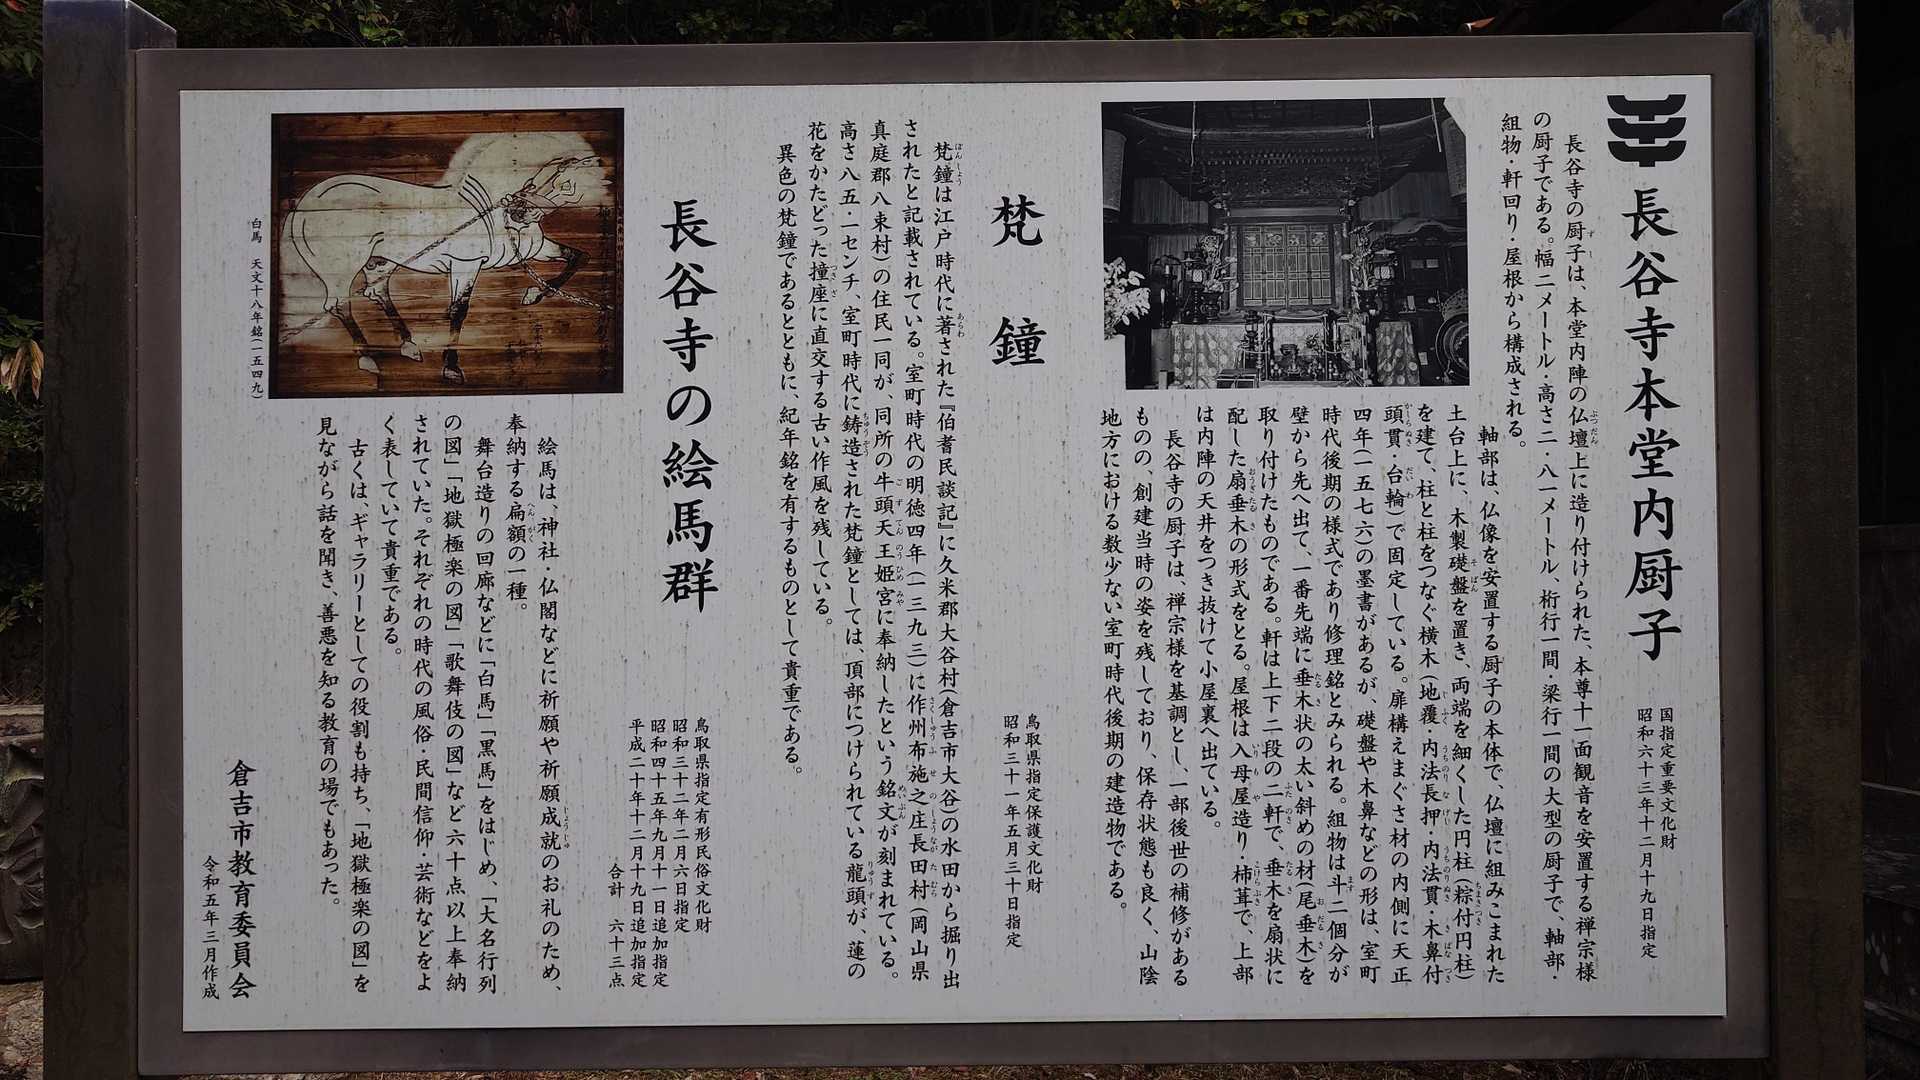 長谷寺本堂内厨子
国指定重要文化財
昭和六十三年十二月十九日指定
長谷寺の厨子は、本堂内陣の仏壇上に造り付けられた、本尊十一面観音を安置する禅宗様
の厨子である。幅二メートル・高さ二・八一メートル、桁行一間・梁行一間の大型の厨子で、軸部・
組物・軒回り・屋根から構成される。
軸部は、仏像を安置する厨子の本体で、仏壇に組みこまれた
土台上に、木製礎盤を置き、両端を細くした円柱（粽付円柱）
を建て、柱と柱をつなぐ横木（地覆・内法長押・内法貫・木鼻付
頭貫・台輪）で固定している。扉構えまぐさ材の内側に天正
四年（一五七六）の墨書があるが、礎盤や木鼻などの形は、室町
時代後期の様式であり修理銘とみられる。組物は斗二個分が
壁から先へ出て、一番先端に垂木状の太い斜めの材（尾垂木）を
取り付けたものである。軒は上下二段の二軒で、垂木を扇状に
配した扇垂木の形式をとる。屋根は入母屋造り・柿葺で、上部
は内陣の天井をつき抜けて小屋裏へ出ている。
長谷寺の厨子は、禅宗様を基調とし、一部後世の補修がある
ものの、創建当時の姿を残しており、保存状態も良く、山陰
地方における数少ない室町時代後期の建造物である。
梵鐘
鳥取県指定保護文化財
昭和三十一年五月三十日指定
梵鐘は江戸時代に著された『伯耆民談記』に久米郡大谷村（倉吉市大谷）の水田から掘り出
されたと記載されている。室町時代の明徳四年（一三九三）に作州布施之庄長田村（岡山県
真庭郡八束村）の住民一同が、同所の牛頭天王姫宮に奉納したという銘文が刻まれている。
高さ八五・一センチ、室町時代に鋳造された梵鐘としては、頂部につけられている龍頭が、蓮の
花をかたどった撞座に直交する古い作風を残している。
異色の梵鐘であるとともに、紀年銘を有するものとして貴重である。
長谷寺の絵馬群
鳥取県指定有形民俗文化財
昭和三十二年二月六日指定
昭和四十五年九月十一日追加指定
平成二十年十二月十九日追加指定
合計 六十三点
白馬 天文十八年銘（一五四九）
絵馬は、神社・仏閣などに祈願や祈願成就のお礼のため、
奉納する扁額の一種。
舞台造りの回廊などに「白馬」「黒馬」をはじめ、「大名行列
の図」「地獄極楽の図」「歌舞伎の図」など六十点以上奉納
されていた。それぞれの時代の風俗・民間信仰・芸術などをよ
く表していて貴重である。
古くは、ギャラリーとしての役割も持ち、「地獄極楽の図」を
見ながら話を聞き、善悪を知る教育の場でもあった。
倉吉市教育委員会
令和五年三月作成